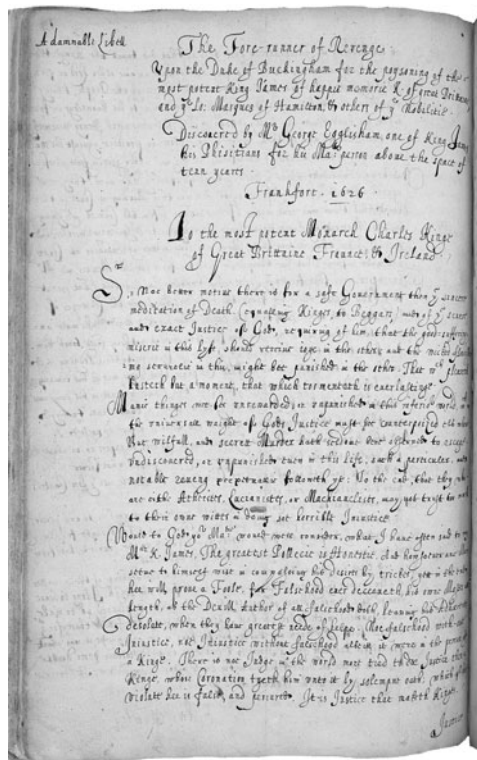 A damnable Libell
The Fore-runner of Revenge.
Upon the Duke of Buckingham for the poysoning of the
most potent King James of happie memorie K. of great Brittany
and ye Lo. Marques of Hamilton, & others of ye Nobilitie.
Discovered by Mr George Egglisham, one of King James
his Phisitians for his Maties person above the space of
tenn years.
Frankfort. 1626.
To the most potent Monarch Charles Kinge
of Great Brittaine Fraunce, & Ireland
Sr, Noe better motive there is for a safe Government then ye
meditation of Death, (equalling Kinges, to Beggars) and of ye
and exact Justice of God, requiring of him, that the good
miserie in this lyfe, should receive in the other and the wicked
no in this, might bee punished in the other. That wch
but a moment, that which tormenteth is everlastinge.
Manie thinges must bee unrewarded, or unpunished in this
the universale weight of Gods Justice must bee
But wilfull, and secret Murder hath seldome bene observed to
undiscovered, or unpunished even in this life, such a particuler, and
notable revenge followeth yt: To the end, that they who
are eithr Atheistes, Lucianistes, or Machiavelists, may not trust
to their owne wittes in doing soe horrible Iniustice
Would to God yor Matie would well consider, what I have often said to my
Mr K. James, The greatest Pollecie is Honestie. And howsoever
seeme to himself wise in compassing his desires by tricks, yet in the
hee will prove a Foole, for Falsehood ever deceiveth his owne Master at
length, as the Devill Author of all falsehood doth, leaving his
desolate, when they have greatest neede of helpe: Noe falsehood without
Iniustice, noe Iniustice without falsehood albeit it were in the person of
a Kinge. There is noe Judge in the world more tied to doe Justice then
Kinge, whose Coronation tyeth him unto it by solempne oath, which
violate hee is false, and periured. It is Justice that maketh Kings,
Justice